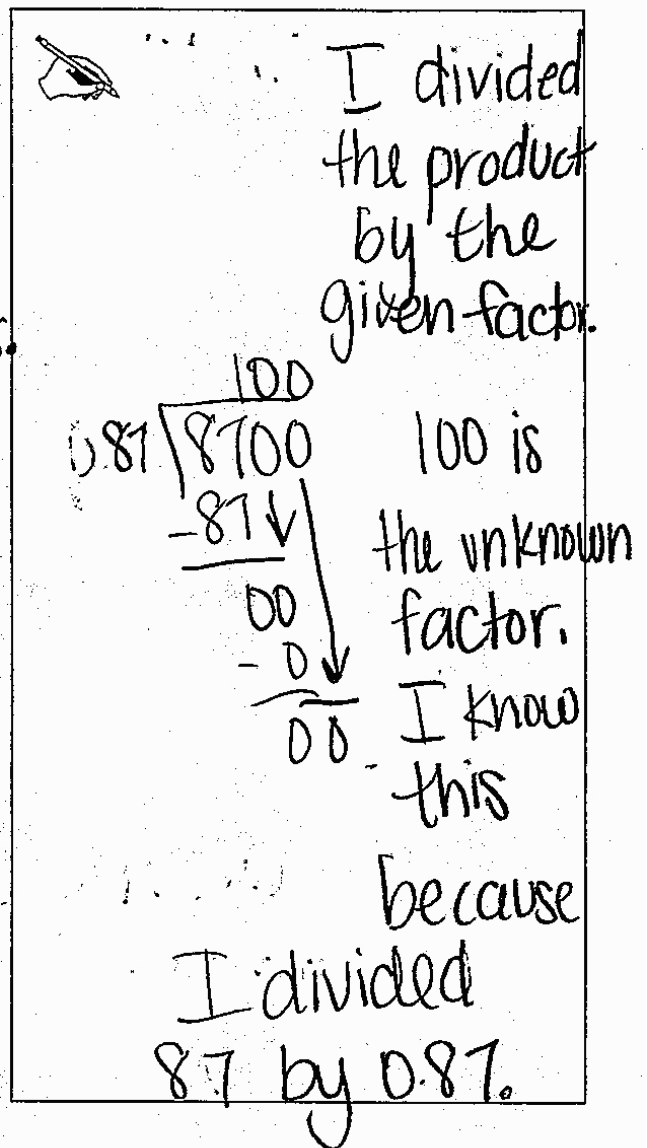 I divided
the product
by the
given factor.
100
0.87 8700
100 is
-87
the unknown
00
factor.
- 0
I know
00
this
because
I divided
87 by 0.87.